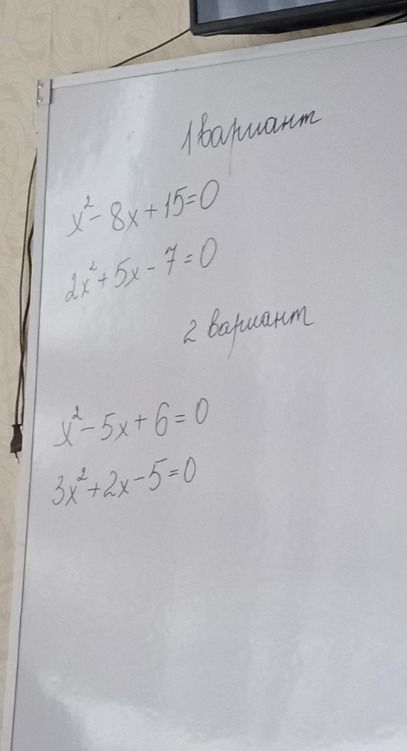 1 вариант
x² - 8x + 15 = 0
2x² + 5x - 7 = 0
2 вариант
x² - 5x + 6 = 0
3x² + 2x - 5 = 0